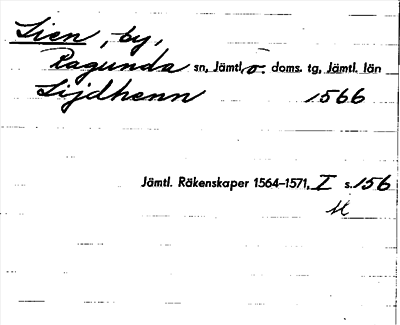 Lien, by,
Ragunda sn, Jämtl. ö. doms. tg, Jämtl. län
Lijdhenn 1566
Jämtl. Räkenskaper 1564–1571, I s. 156